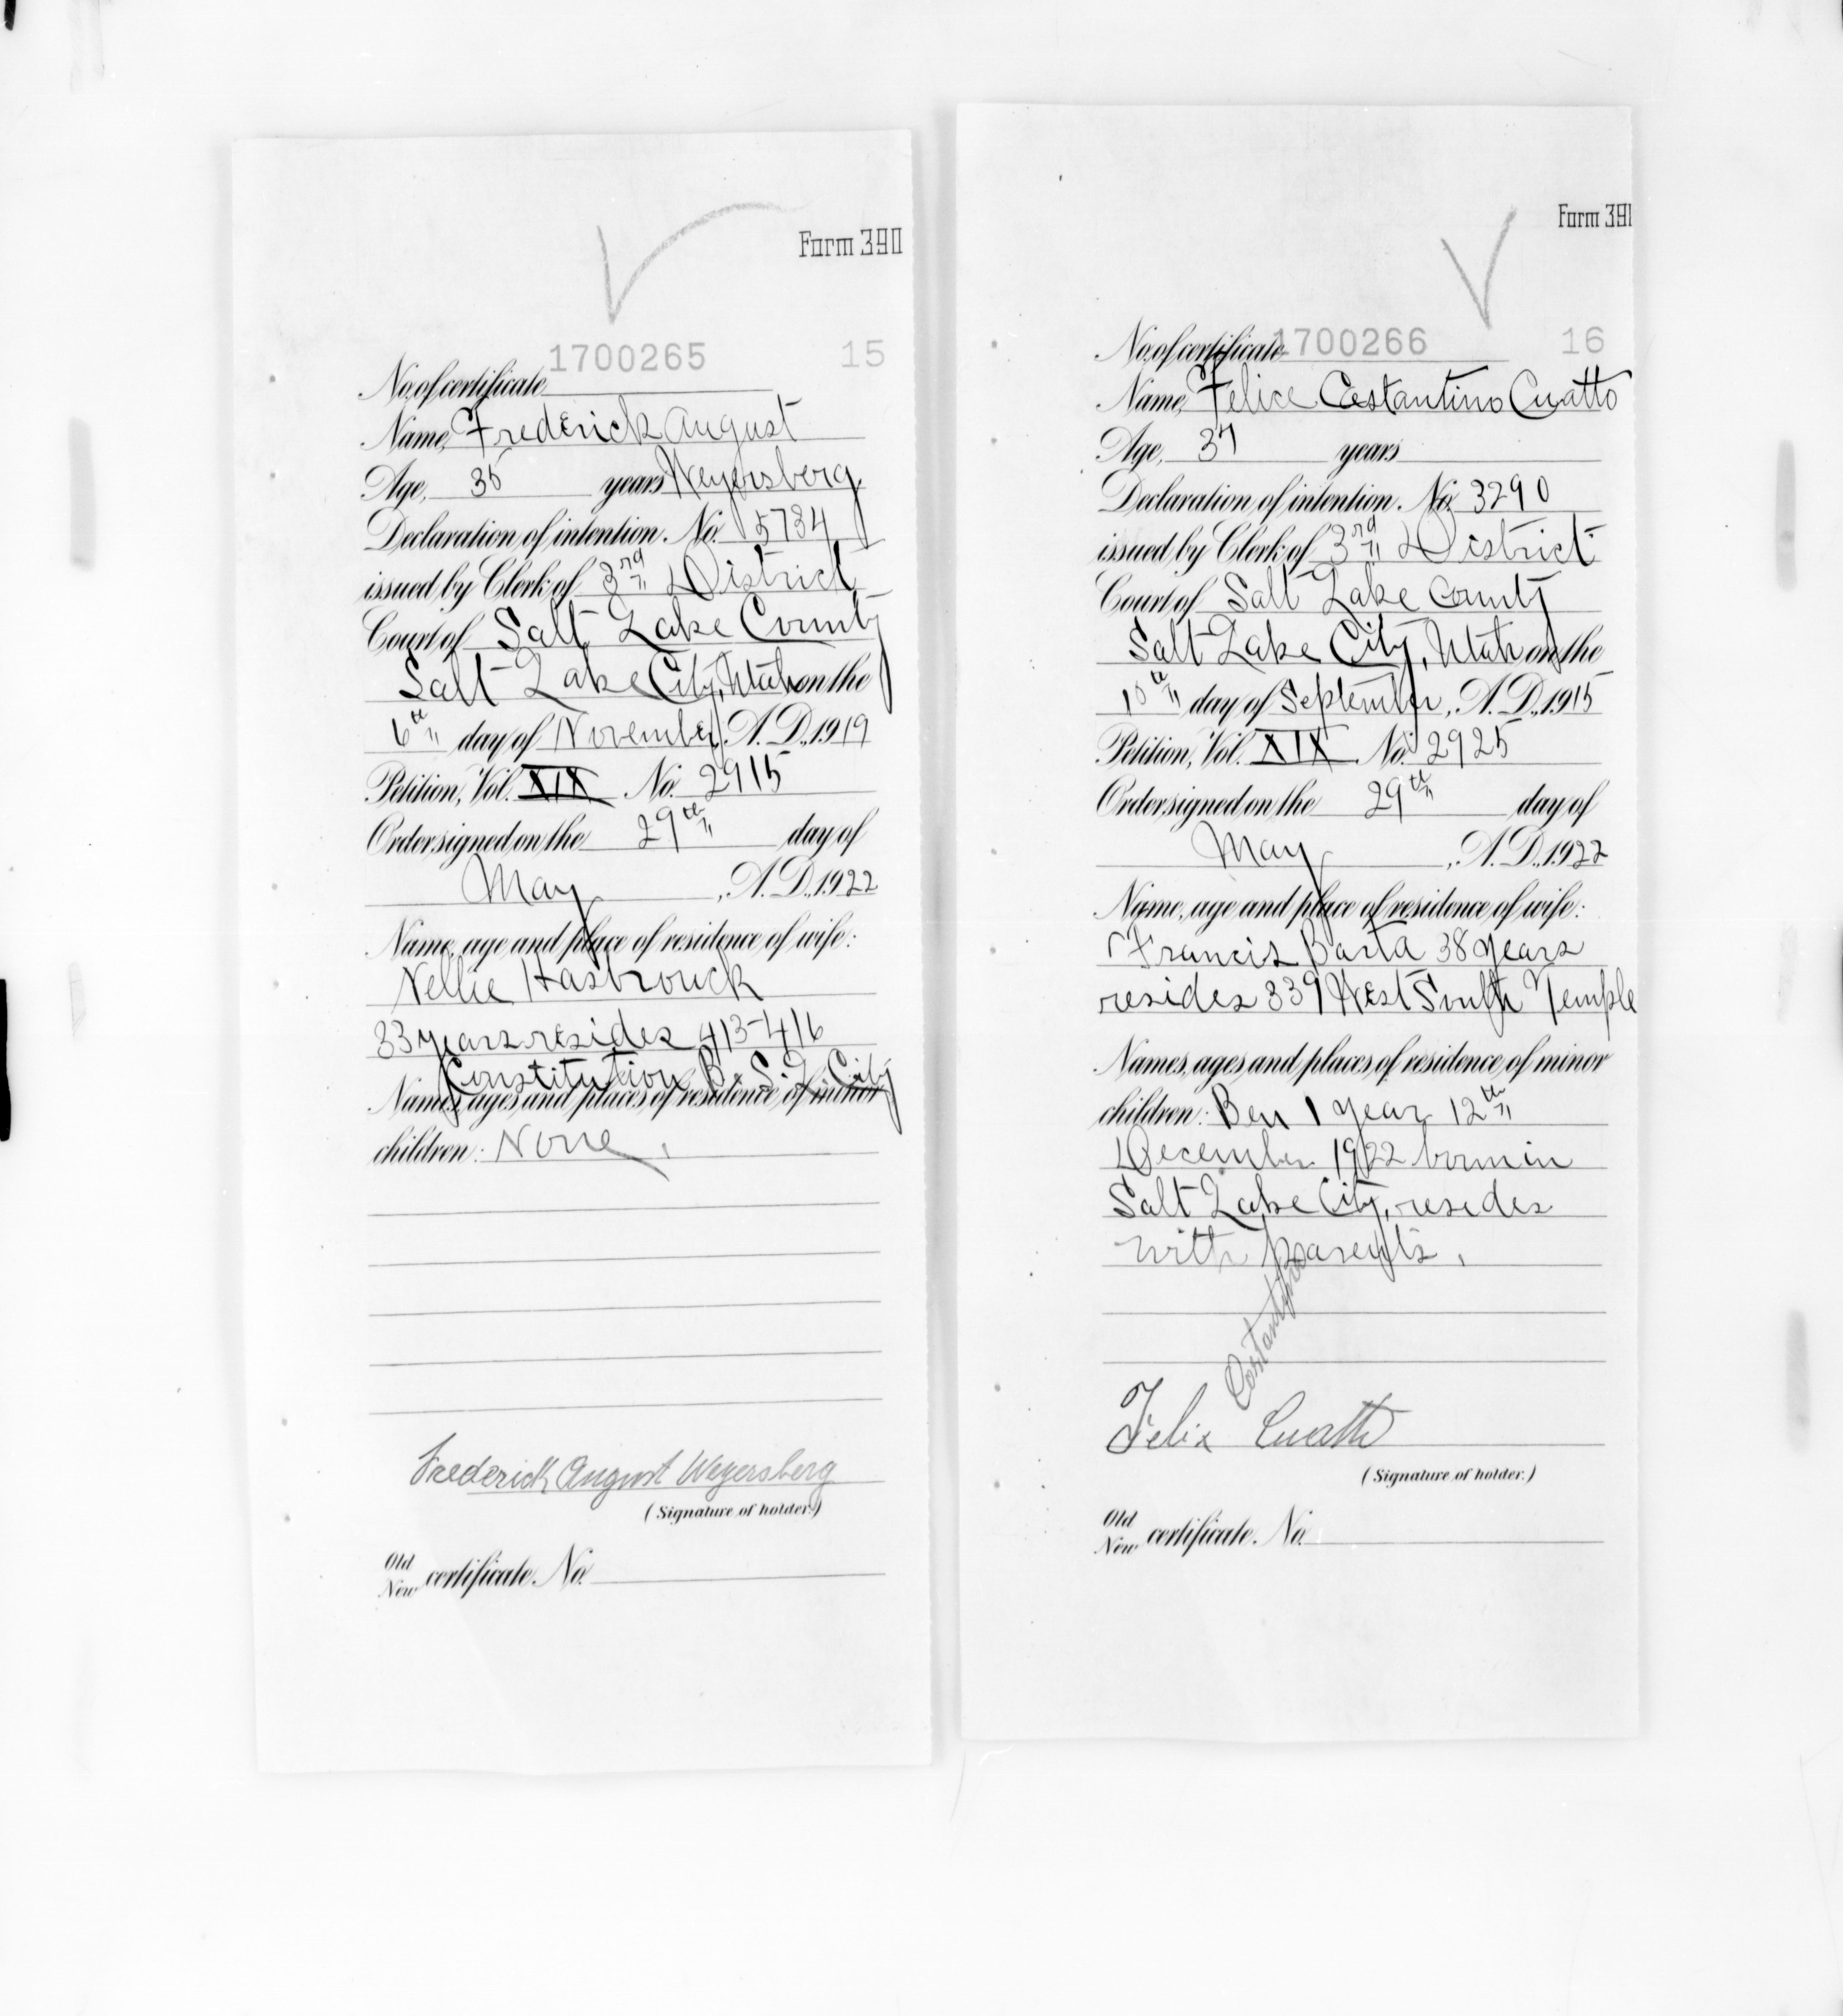 Form 390
1700265 15
No. of certificate
Name, Frederick August
Age, 35 years Weyersberg
Declaration of intention. No. 5734
issued by Clerk of 3rd District
Court of Salt Lake County
Salt Lake City, Utah on the
6th day of November, A.D., 1919
Petition, Vol. XIX No. 2915
Order signed on the 29th day of
May, A.D., 1922
Name, age and place of residence of wife:
Nellie Hasbrouck
33 years resides 413-416
Constitution B. S. L. City
Names, ages and places of residence of minor
children: None.
Frederick August Weyersberg
(Signature of holder.)
Old
New certificate. No.
Form 391
No. of certificate 1700266 16
Name, Felice Costantino Cuatto
Age, 37 years
Declaration of intention. No. 3290
issued by Clerk of 3rd District
Court of Salt Lake County
Salt Lake City, Utah on the
10th day of September, A.D., 1915
Petition, Vol. XIX No. 2925
Order signed on the 29th day of
May, A.D., 1922
Name, age and place of residence of wife:
Francis Barta 38 years
resides 339 West South Temple
Names, ages and places of residence of minor
children: Ben 1 year 12th
December 1922 born in
Salt Lake City, resides
with parents.
Costantino
Felix Cuatto
(Signature of holder.)
Old
New certificate. No.